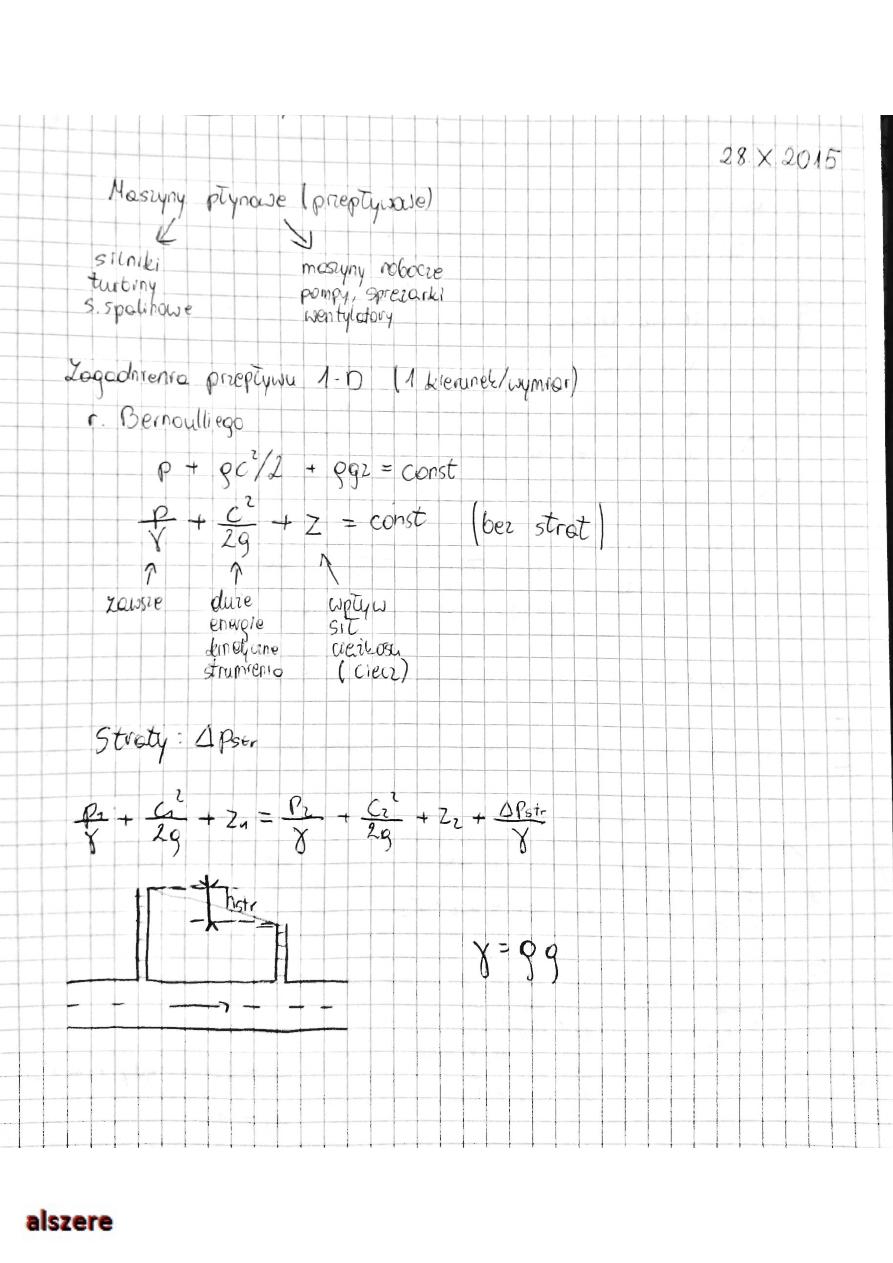 28.X.2015
Maszyny płynowe (przepływowe)
silniki
turbiny
s. spalinowe
maszyny robocze
pompy, sprężarki
wentylatory
Zagadnienia przepływu 1-D (1 kierunek/wymiar)
r. Bernoulliego
p + ρc²/2 + ρgz = const
p/γ + c²/2g + z = const (bez strat)
zawsze
duże
energie
kinetyczne
strumienia
wpływ
sił
ciężkości
(ciecz)
Straty: Δpstr
p₁/γ + c₁²/2g + z₁ = p₂/γ + c₂²/2g + z₂ + Δpstr/γ
hstr
γ = ρg
alszere